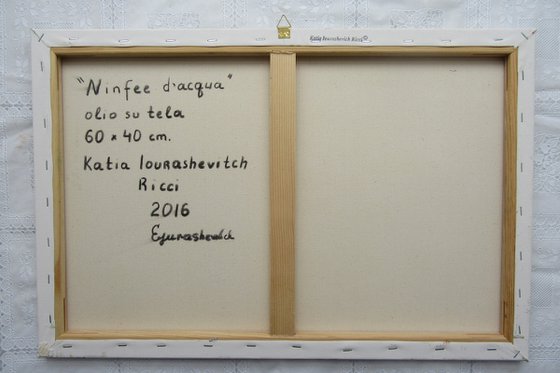 Katia Iourashevich Ricci
"Ninfee d'acqua"
olio su tela
60 × 40 cm.
Katia Iourashevitch
Ricci
2016